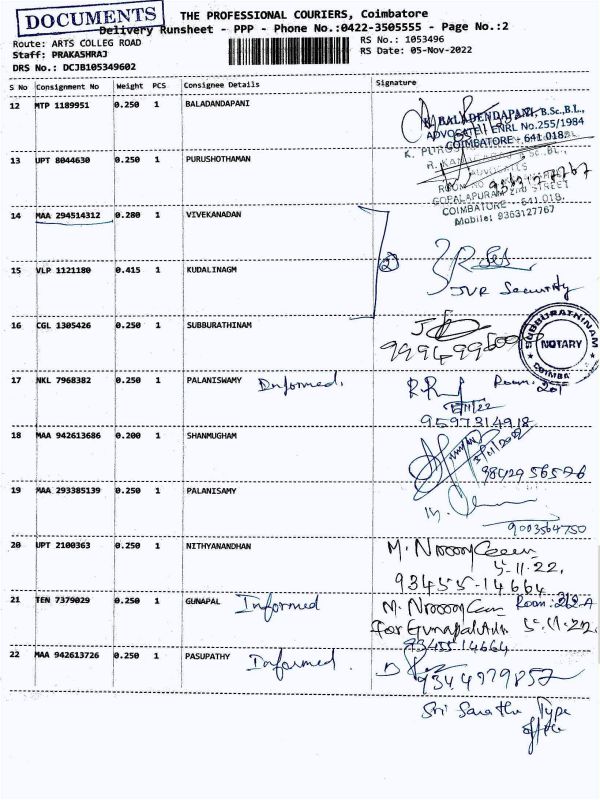 DOCUMENTS
THE PROFESSIONAL COURIERS, Coimbatore
Delivery Runsheet - PPP - Phone No.:0422-3505555 - Page No.:2
Route: ARTS COLLEG ROAD
RS No.: 1053496
Staff: PRAKASHRAJ
RS Date: 05-Nov-2022
DRS No.: DCJB105349602
S No Consignment No Weight PCS Consignee Details Signature
12 MTP 1189951 0.250 1 BALADANDAPANI
K. BALADENDAPANI, B.Sc.,B.L.,
ADVOCATE ENRL No.255/1984
COIMBATORE - 641 018.
13 UPT 8044630 0.250 1 PURUSHOTHAMAN
ADVOCATES
GOPALAPURAM 2nd STREET
COIMBATORE - 641 018.
Mobile: 9363127767
14 MAA 294514312 0.280 1 VIVEKANADAN
2
15 VLP 1121180 0.415 1 KUDALINAGM
JVR Security
16 CGL 1305426 0.250 1 SUBBURATHINAM
SUBBURATHINAM
NOTARY
17 NKL 7968382 0.250 1 PALANISWAMY Informed. Room: 201
5/11/22
9597314918
18 MAA 942613686 0.200 1 SHANMUGHAM
5/11/2022
98429 56576
19 MAA 293385139 0.250 1 PALANISAMY
9003564750
20 UPT 2100363 0.250 1 NITHYANANDHAN
5-11.22.
93455-14664
21 TEN 7379029 0.250 1 GUNAPAL Informed Room: 262-A
for Gunapal Adv. 5-11.22.
9345514664
22 MAA 942613726 0.250 1 PASUPATHY Informed.
9344979857
Sri Type
office